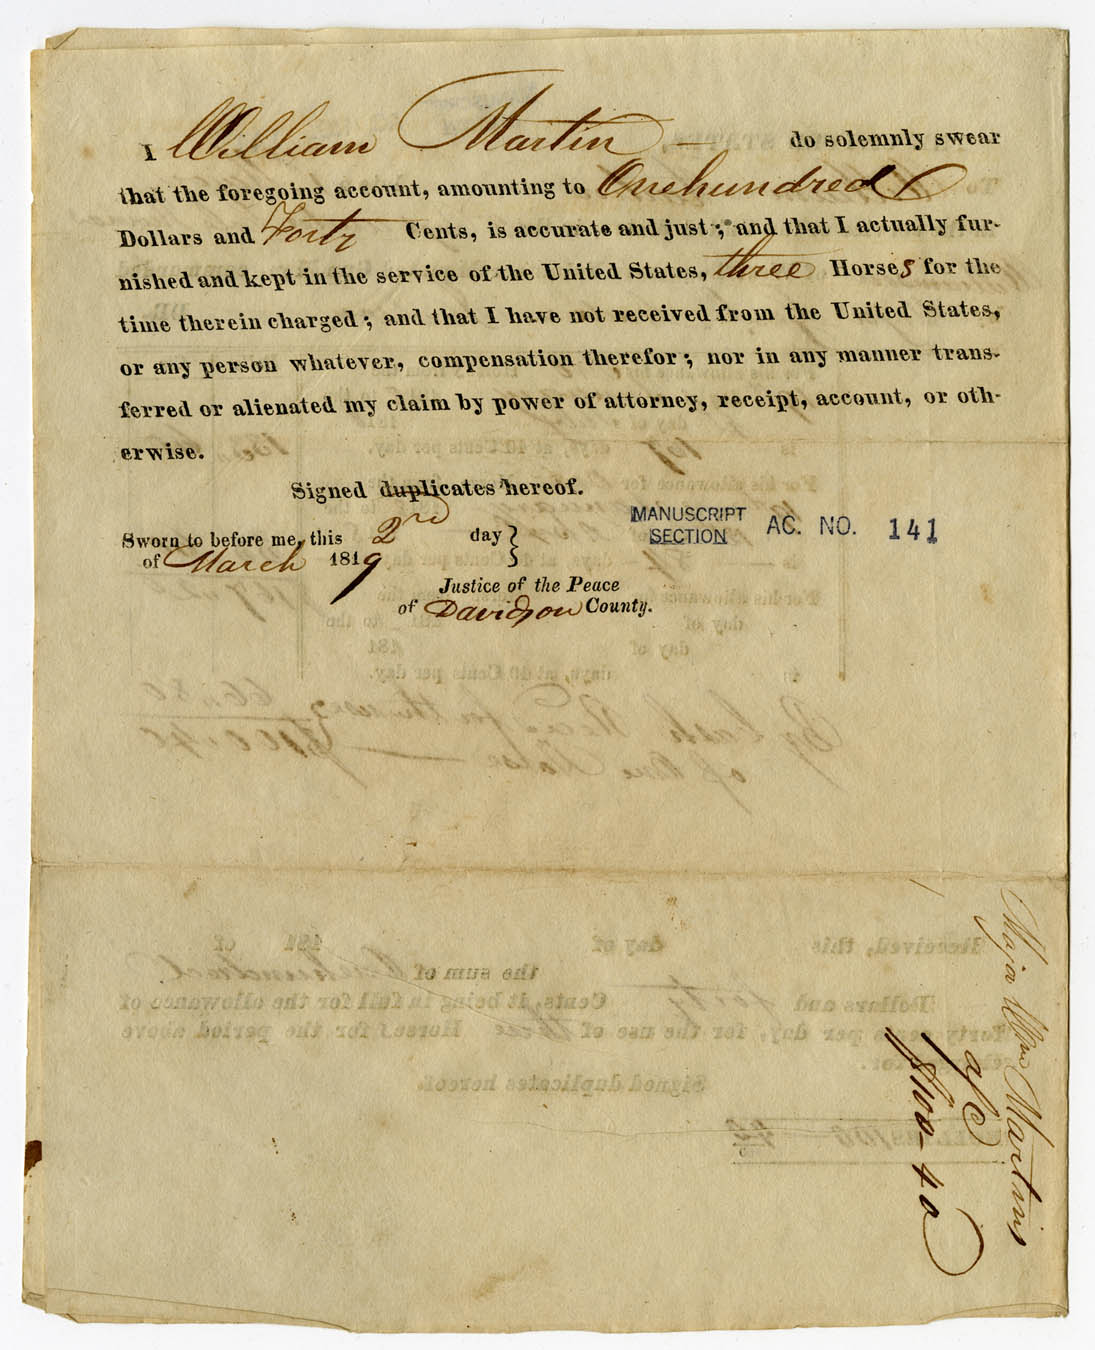 I William Martin — do solemnly swear
that the foregoing account, amounting to Onehundred
Dollars and Forty Cents, is accurate and just; and that I actually fur-
nished and kept in the service of the United States, three Horses for the
time therein charged; and that I have not received from the United States,
or any person whatever, compensation therefor; nor in any manner trans-
ferred or alienated my claim by power of attorney, receipt, account, or oth-
erwise.
Signed duplicates hereof.
Sworn to before me, this 2nd day
of March 1819
Justice of the Peace
of Davidson County.
MANUSCRIPT
SECTION
AC. NO. 141
Majr Wm Martins
a/c
$100-40